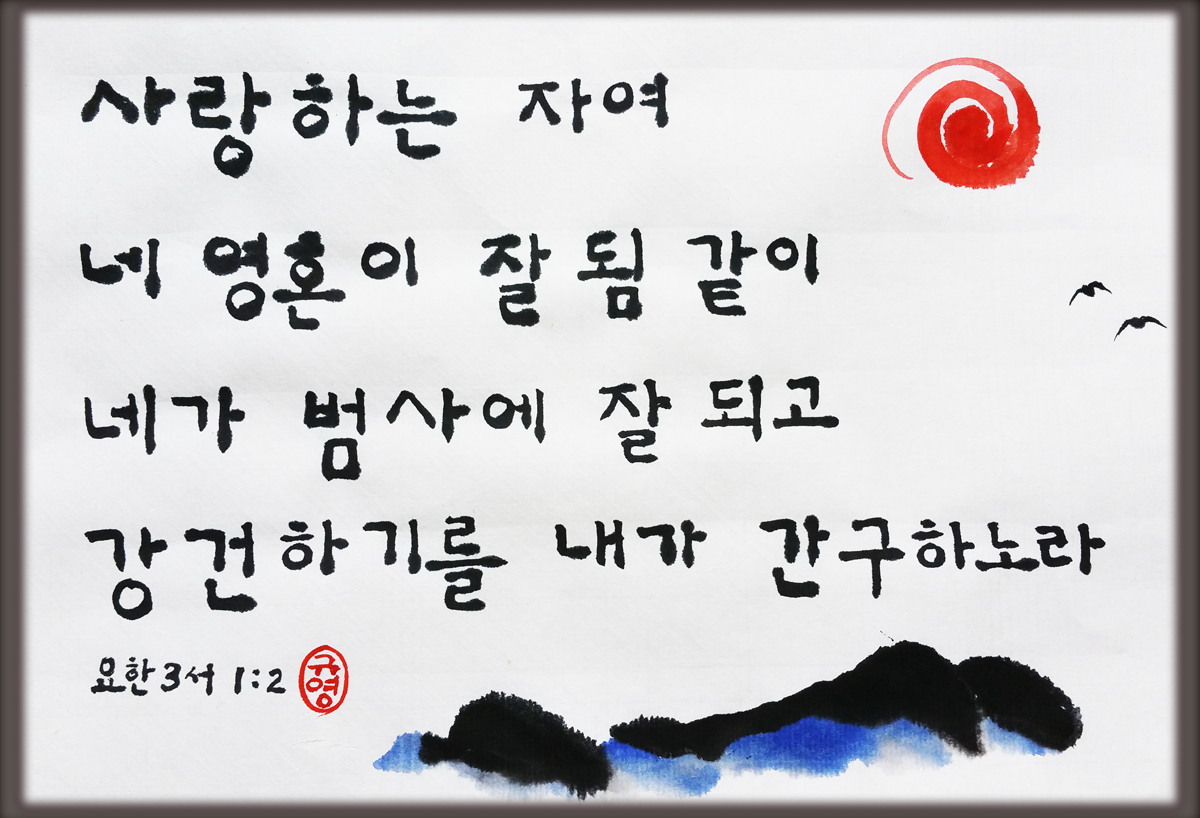 사랑하는 자여
네 영혼이 잘 됨 같이
네가 범사에 잘 되고
강건하기를 내가 간구하노라
요한3서 1:2
규영